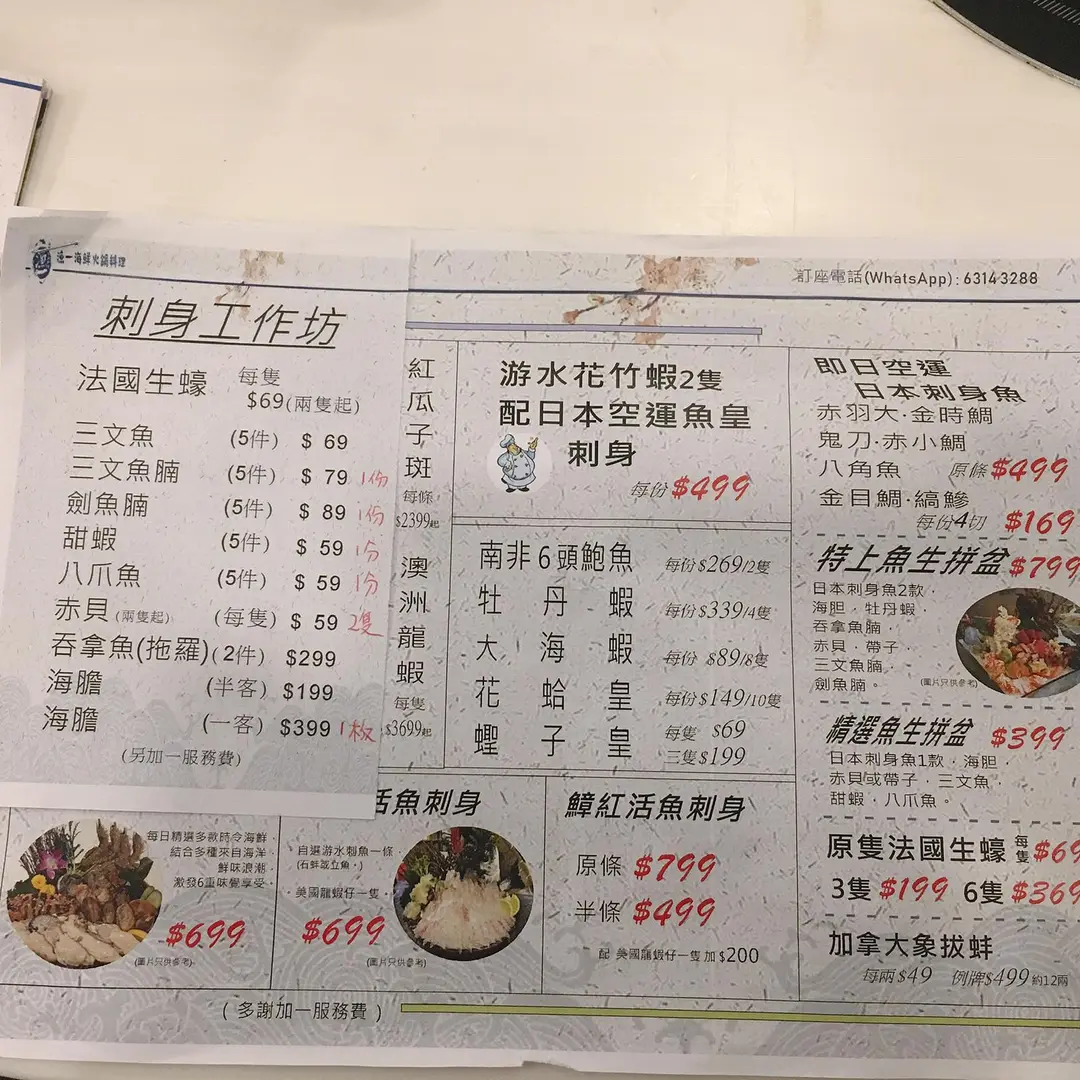 漁一海鮮火鍋料理
刺身工作坊
法國生蠔 每隻 $69(兩隻起)
三文魚 (5件) $ 69
三文魚腩 (5件) $ 79 1份
劍魚腩 (5件) $ 89 1份
甜蝦 (5件) $ 59 1份
八爪魚 (5件) $ 59 1份
赤貝(兩隻起) (每隻) $ 59 2隻
吞拿魚(拖羅)(2件) $299
海膽 (半客) $199
海膽 (一客) $399 1枚
(另加一服務費)
訂座電話(WhatsApp):63143288
紅瓜子斑
每條
$2399起
澳洲龍蝦
每隻
$3699起
游水花竹蝦2隻
配日本空運魚皇
刺身
每份 $499
南非6頭鮑魚 每份$269/2隻
牡丹蝦 每份$339/4隻
大海蝦 每份 $89/8隻
花蛤皇 每份$149/10隻
蟶子皇 每隻 $69
三隻$199
即日空運
日本刺身魚
赤羽大·金時鯛
鬼刀·赤小鯛
八角魚 原條$499
金目鯛·縞鰺
每份4切 $169
特上魚生拼盆$799
日本刺身魚2款，
海胆，牡丹蝦，
吞拿魚腩，
赤貝，帶子，
三文魚腩，
劍魚腩。
(圖片只供參考)
精選魚生拼盆 $399
日本刺身魚1款，海胆，
赤貝或帶子，三文魚，
甜蝦，八爪魚。
原隻法國生蠔 每隻 $69
3隻 $199 6隻 $369
加拿大象拔蚌
每兩$49 例牌$499約12兩
每日精選多款時令海鮮，
結合多種來自海洋，
鮮味浪潮
激發6重味覺享受。
$699
(圖片只供參考)
活魚刺身
自選游水刺魚一條，
(石蚌或立魚，)
美國龍蝦仔一隻，
$699
(圖片只供參考)
鱆紅活魚刺身
原條 $799
半條 $499
配 美國龍蝦仔一隻 加 $200
(多謝加一服務費)